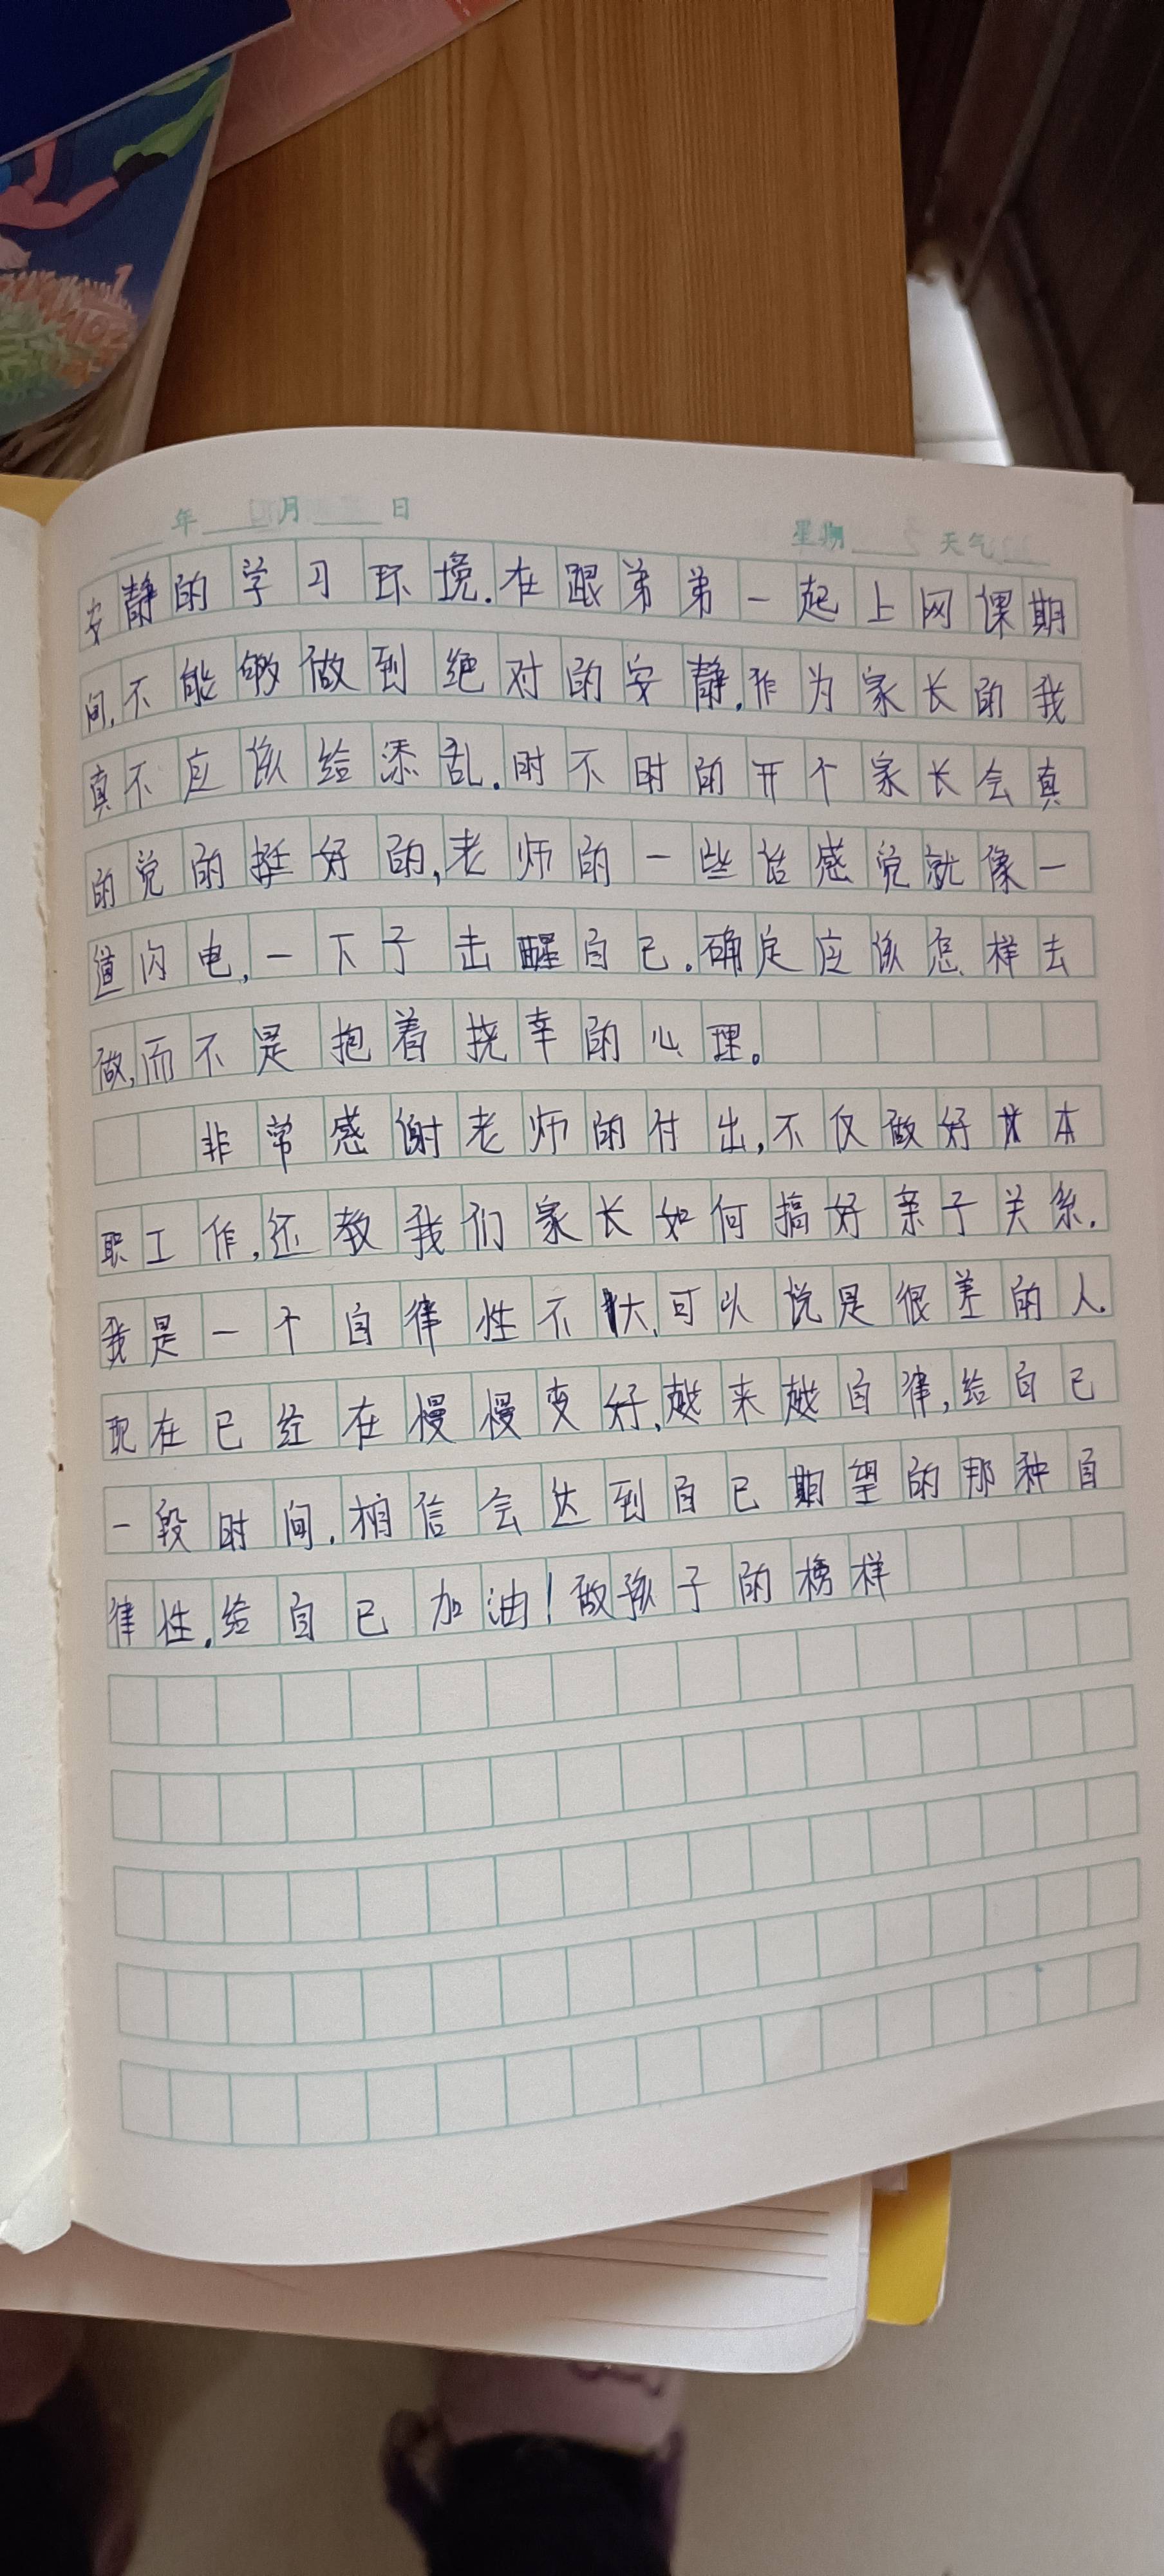 年 月 日 星期 天气
安静的学习环境.在跟弟弟一起上网课期
间,不能够做到绝对的安静.作为家长的我
真不应该给添乱.时不时的开个家长会真
的觉的挺好的,老师的一些话感觉就像一
道闪电,一下子击醒自己.确定应该怎样去
做,而不是抱着挠幸的心理。
非常感谢老师的付出,不仅做好本
职工作,还教我们家长如何搞好亲子关系.
我是一个自律性不大,可以说是很差的人.
现在已经在慢慢变好,越来越自律,给自己
一段时间.相信会达到自己期望的那种自
律性.给自己加油!做孩子的榜样